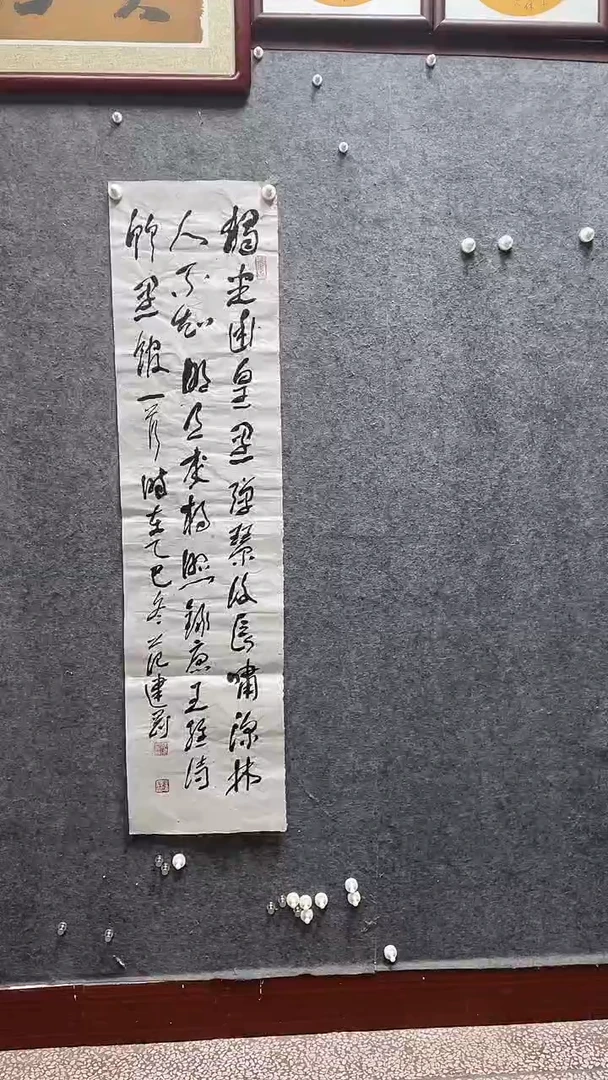 獨坐幽篁里彈琴復長嘯深林
人不知明月来相照錄唐王維詩
竹里館一首時在乙巳冬范建